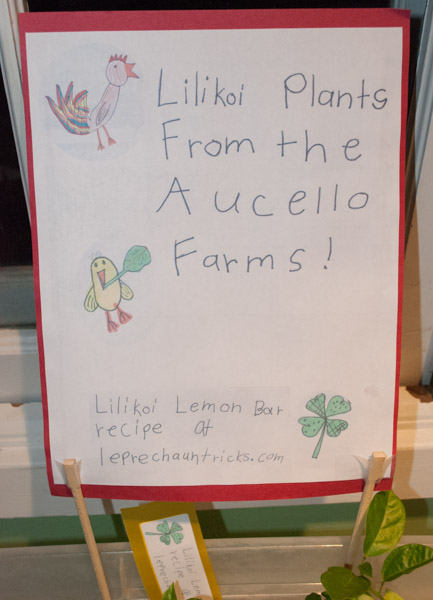 Lilikoi Plants
From the
Aucello
Farms!
Lilikoi Lemon Bar
recipe at
leprechauntricks.com
Lilikoi
recipe